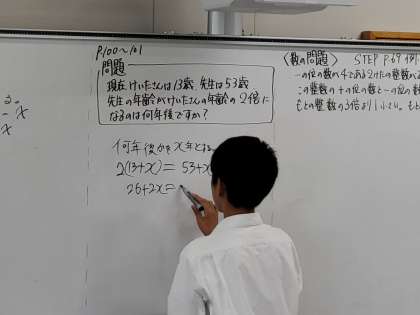 P.100〜101
問題
現在けいたさんは13歳 先生は53歳
先生の年齢がけいたさんの年齢の2倍に
なるのは何年後ですか?
何年後かを x年とする
2(13+x) = 53+x
26+2x =
〈数の問題〉 STEP P.69 例
一の位の数が4である2けたの整数が
この整数の十の位の数と一の位の数
もとの整数の3倍より1小さい。もと
x
x